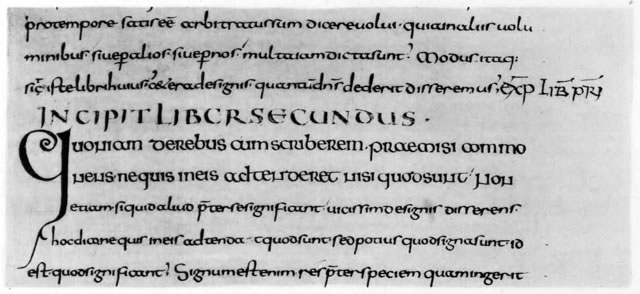 protempore satiseē arbitratussum dicereuolui · quiainaliis uolu
minibus · siueperalios · siuepernos · multaiamdictasunt · Modus itaq;
sit istelibrihuius · &cetera designis · quantū dn̄s dederit disseremus · EXP̄ LIB̄ PRĪ
INCIPIT LIBER SECUNDUS ·
Quoniam derebus cum scriberem · praemisi commo
nens · nequis ineis adtenderet nisi quodsunt · Non
etiam siquidaliud p̄terse significant · uicissim designis disserens ·
hocdico nequis ineis adtenda t quodsunt sedpotius quodsignasunt id
est quodsignificant · Signumestenim res p̄ter speciem quamingerit